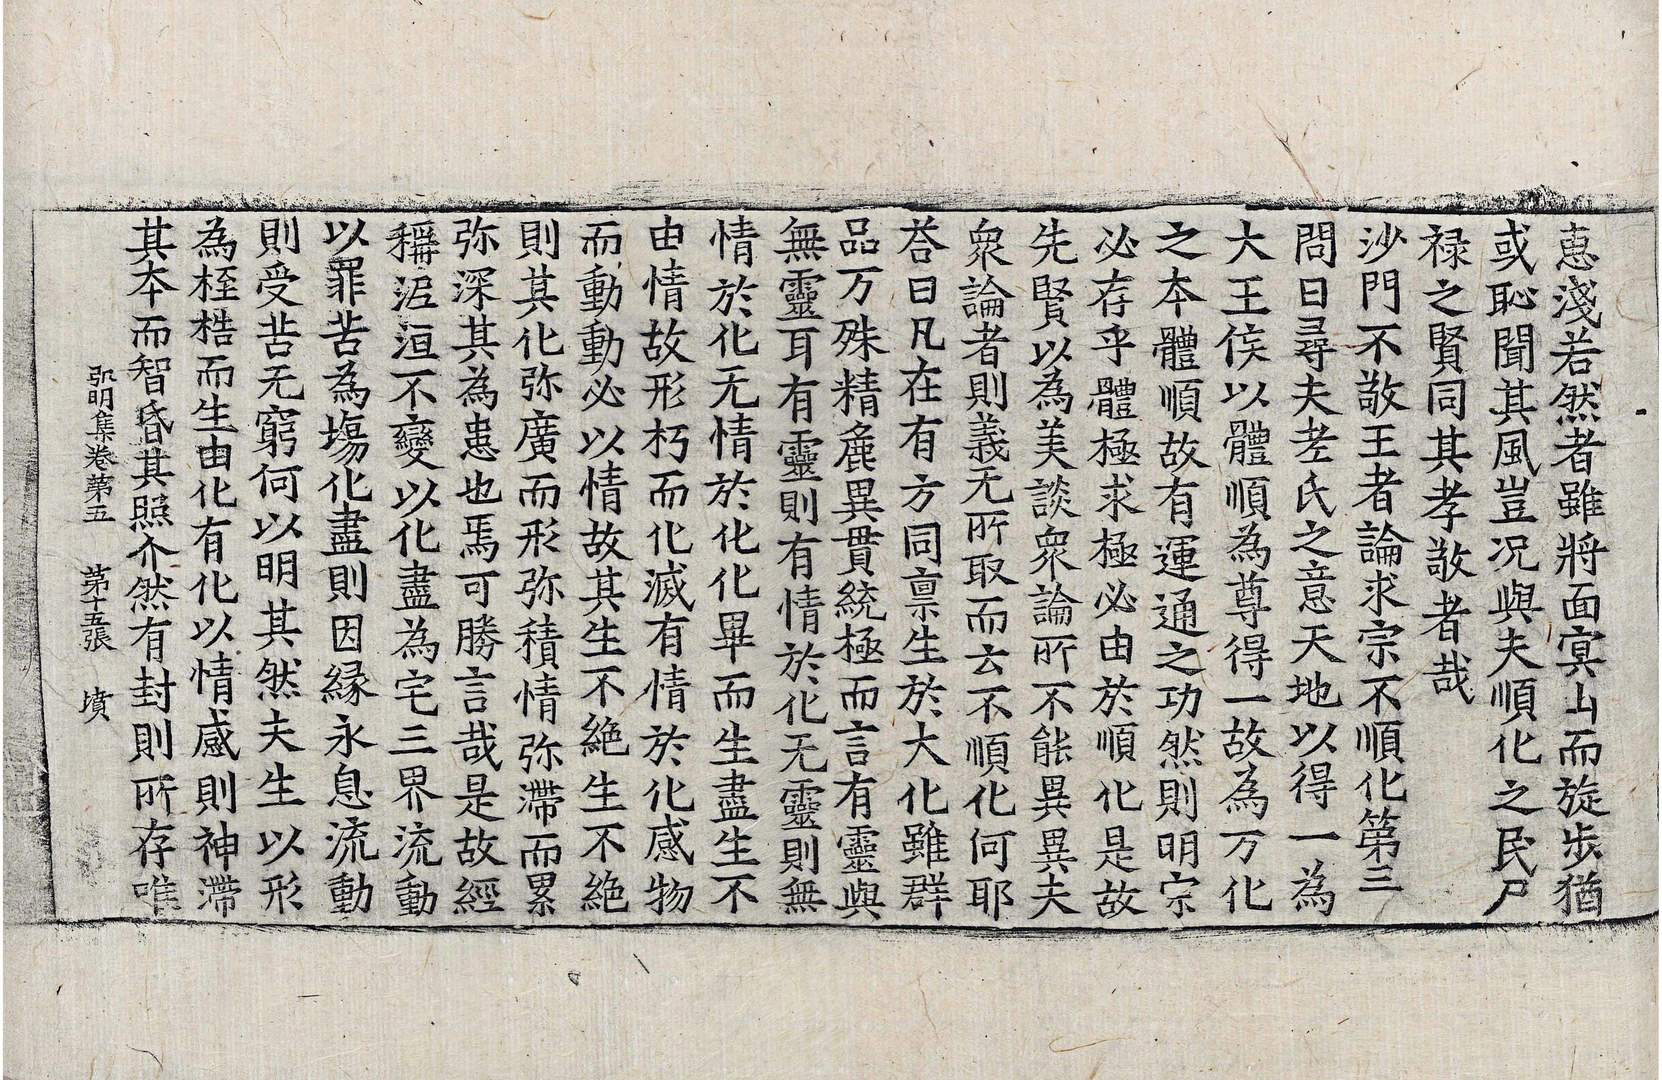 惠淺若然者雖將面㝠山而旋步猶
或恥聞其風豈况與夫順化之民尸
祿之賢同其孝敬者哉
沙門不敬王者論求宗不順化第三
問曰尋夫老氏之意天地以得一為
大王侯以體順為尊得一故為万化
之本體順故有運通之功然則明宗
必存乎體極求極必由於順化是故
先賢以為美談衆論所不能異異夫
衆論者則義无所取而云不順化何耶
荅曰凡在有方同禀生於大化雖群
品万殊精麁異貫統極而言有靈與
無靈耳有靈則有情於化无靈則無
情於化无情於化化畢而生盡生不
由情故形朽而化滅有情於化感物
而動動必以情故其生不絶生不絶
則其化弥廣而形弥積情弥滯而累
弥深其為患也焉可勝言哉是故經
稱泥洹不變以化盡為宅三界流動
以罪苦為塲化盡則因縁永息流動
則受苦无窮何以明其然夫生以形
為桎梏而生由化有化以情感則神滯
其本而智昏其照介然有封則所存唯
弘明集卷第五 第十五張 墳